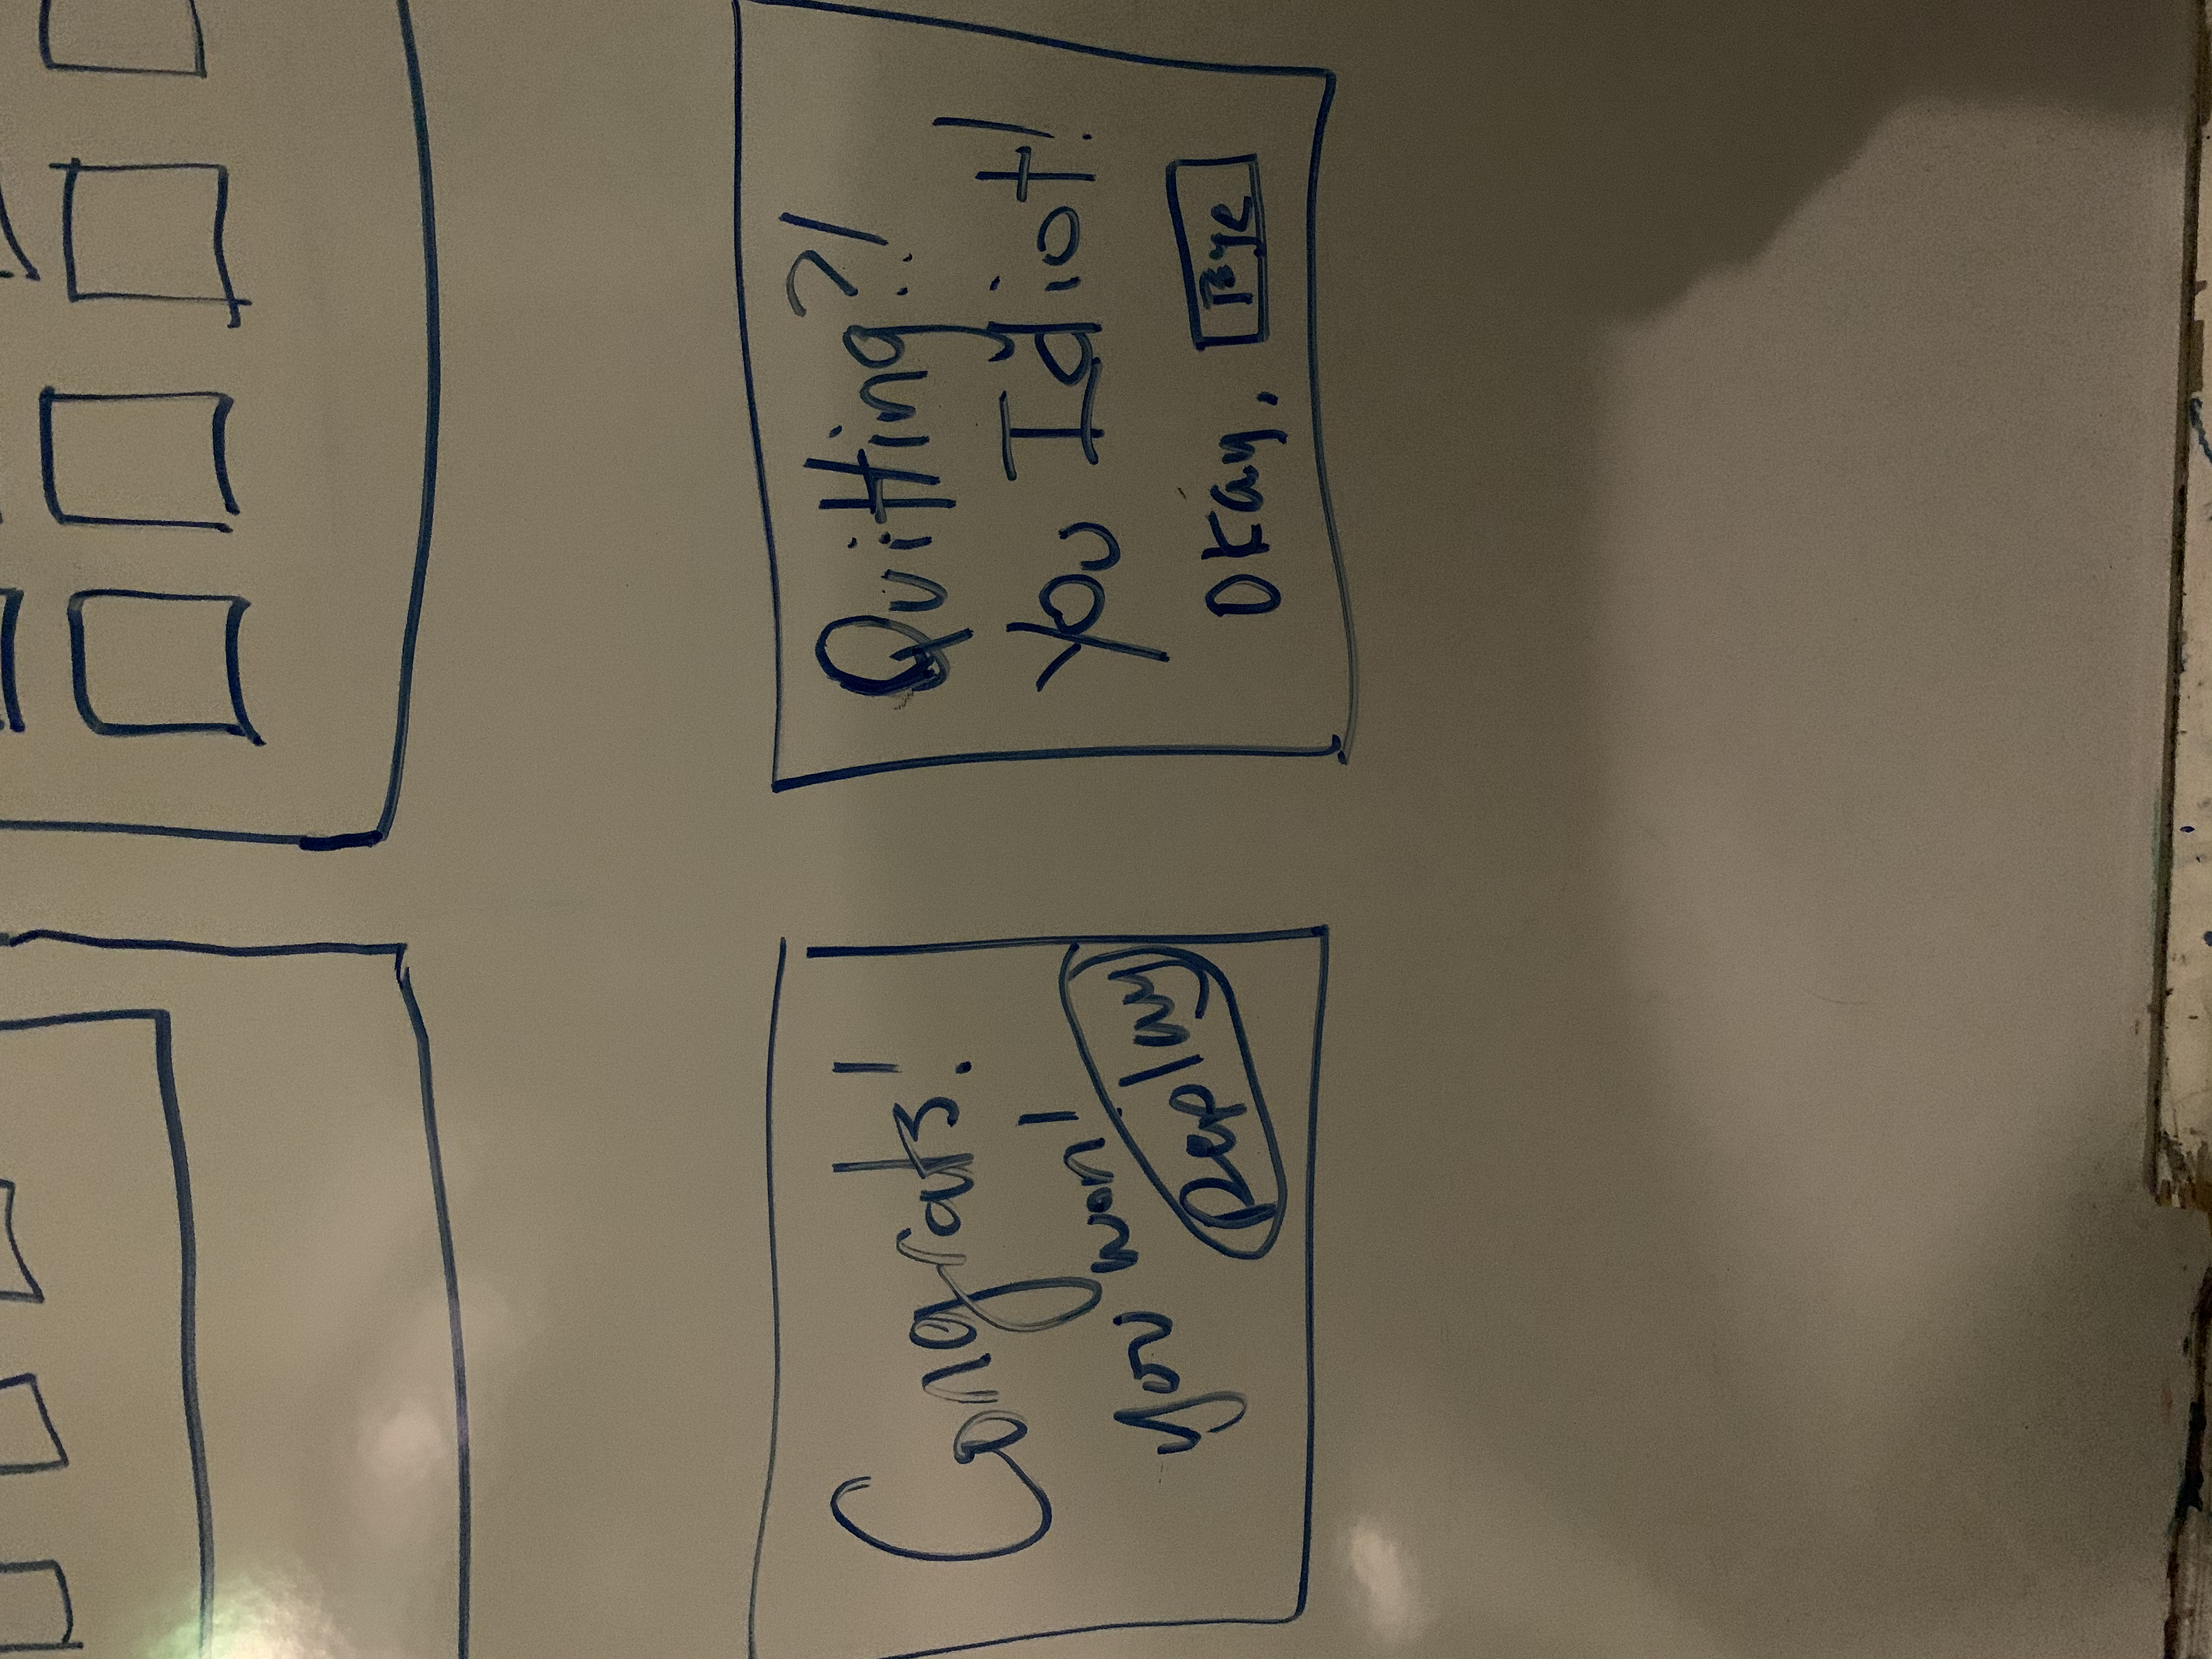 Congrats!
you won!
Replay
Quitting?!
You Idiot!
Okay. Bye